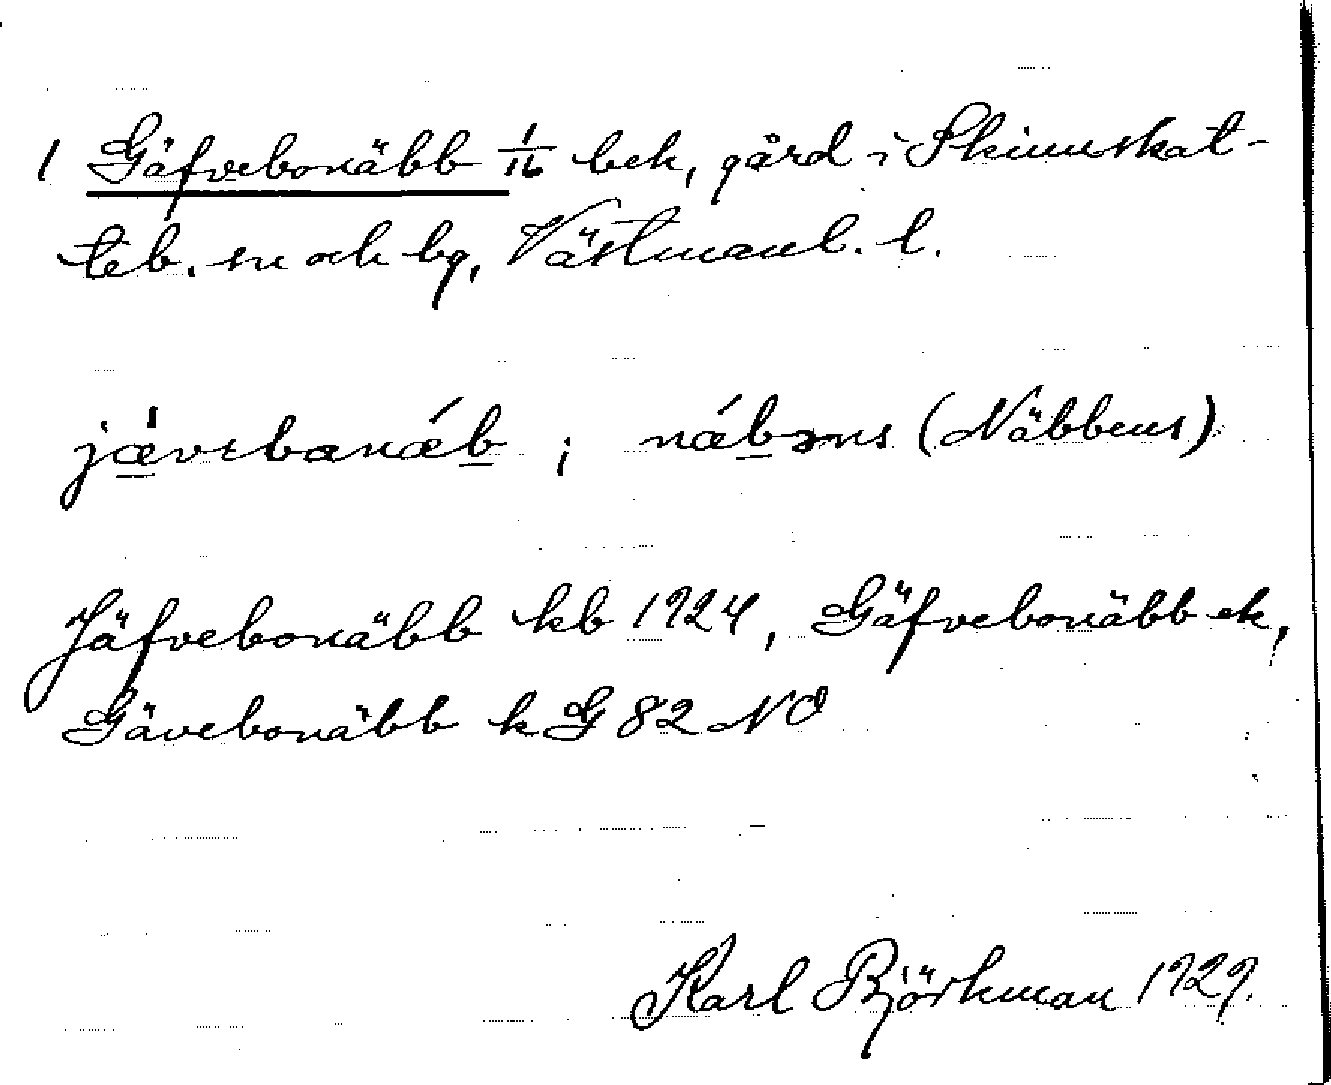 1 Gäfvebonäbb 1/16 bek, gård i Skinnskat-
teb. sn och bg, Västmanl. l.
jǽvebanǽb ; nǽbəns (Näbbens)
Jäfvebonäbb kb 1924, Gäfvebonäbb ek,
Gävebonäbb k G 82 NO
Karl Björkman 1929.